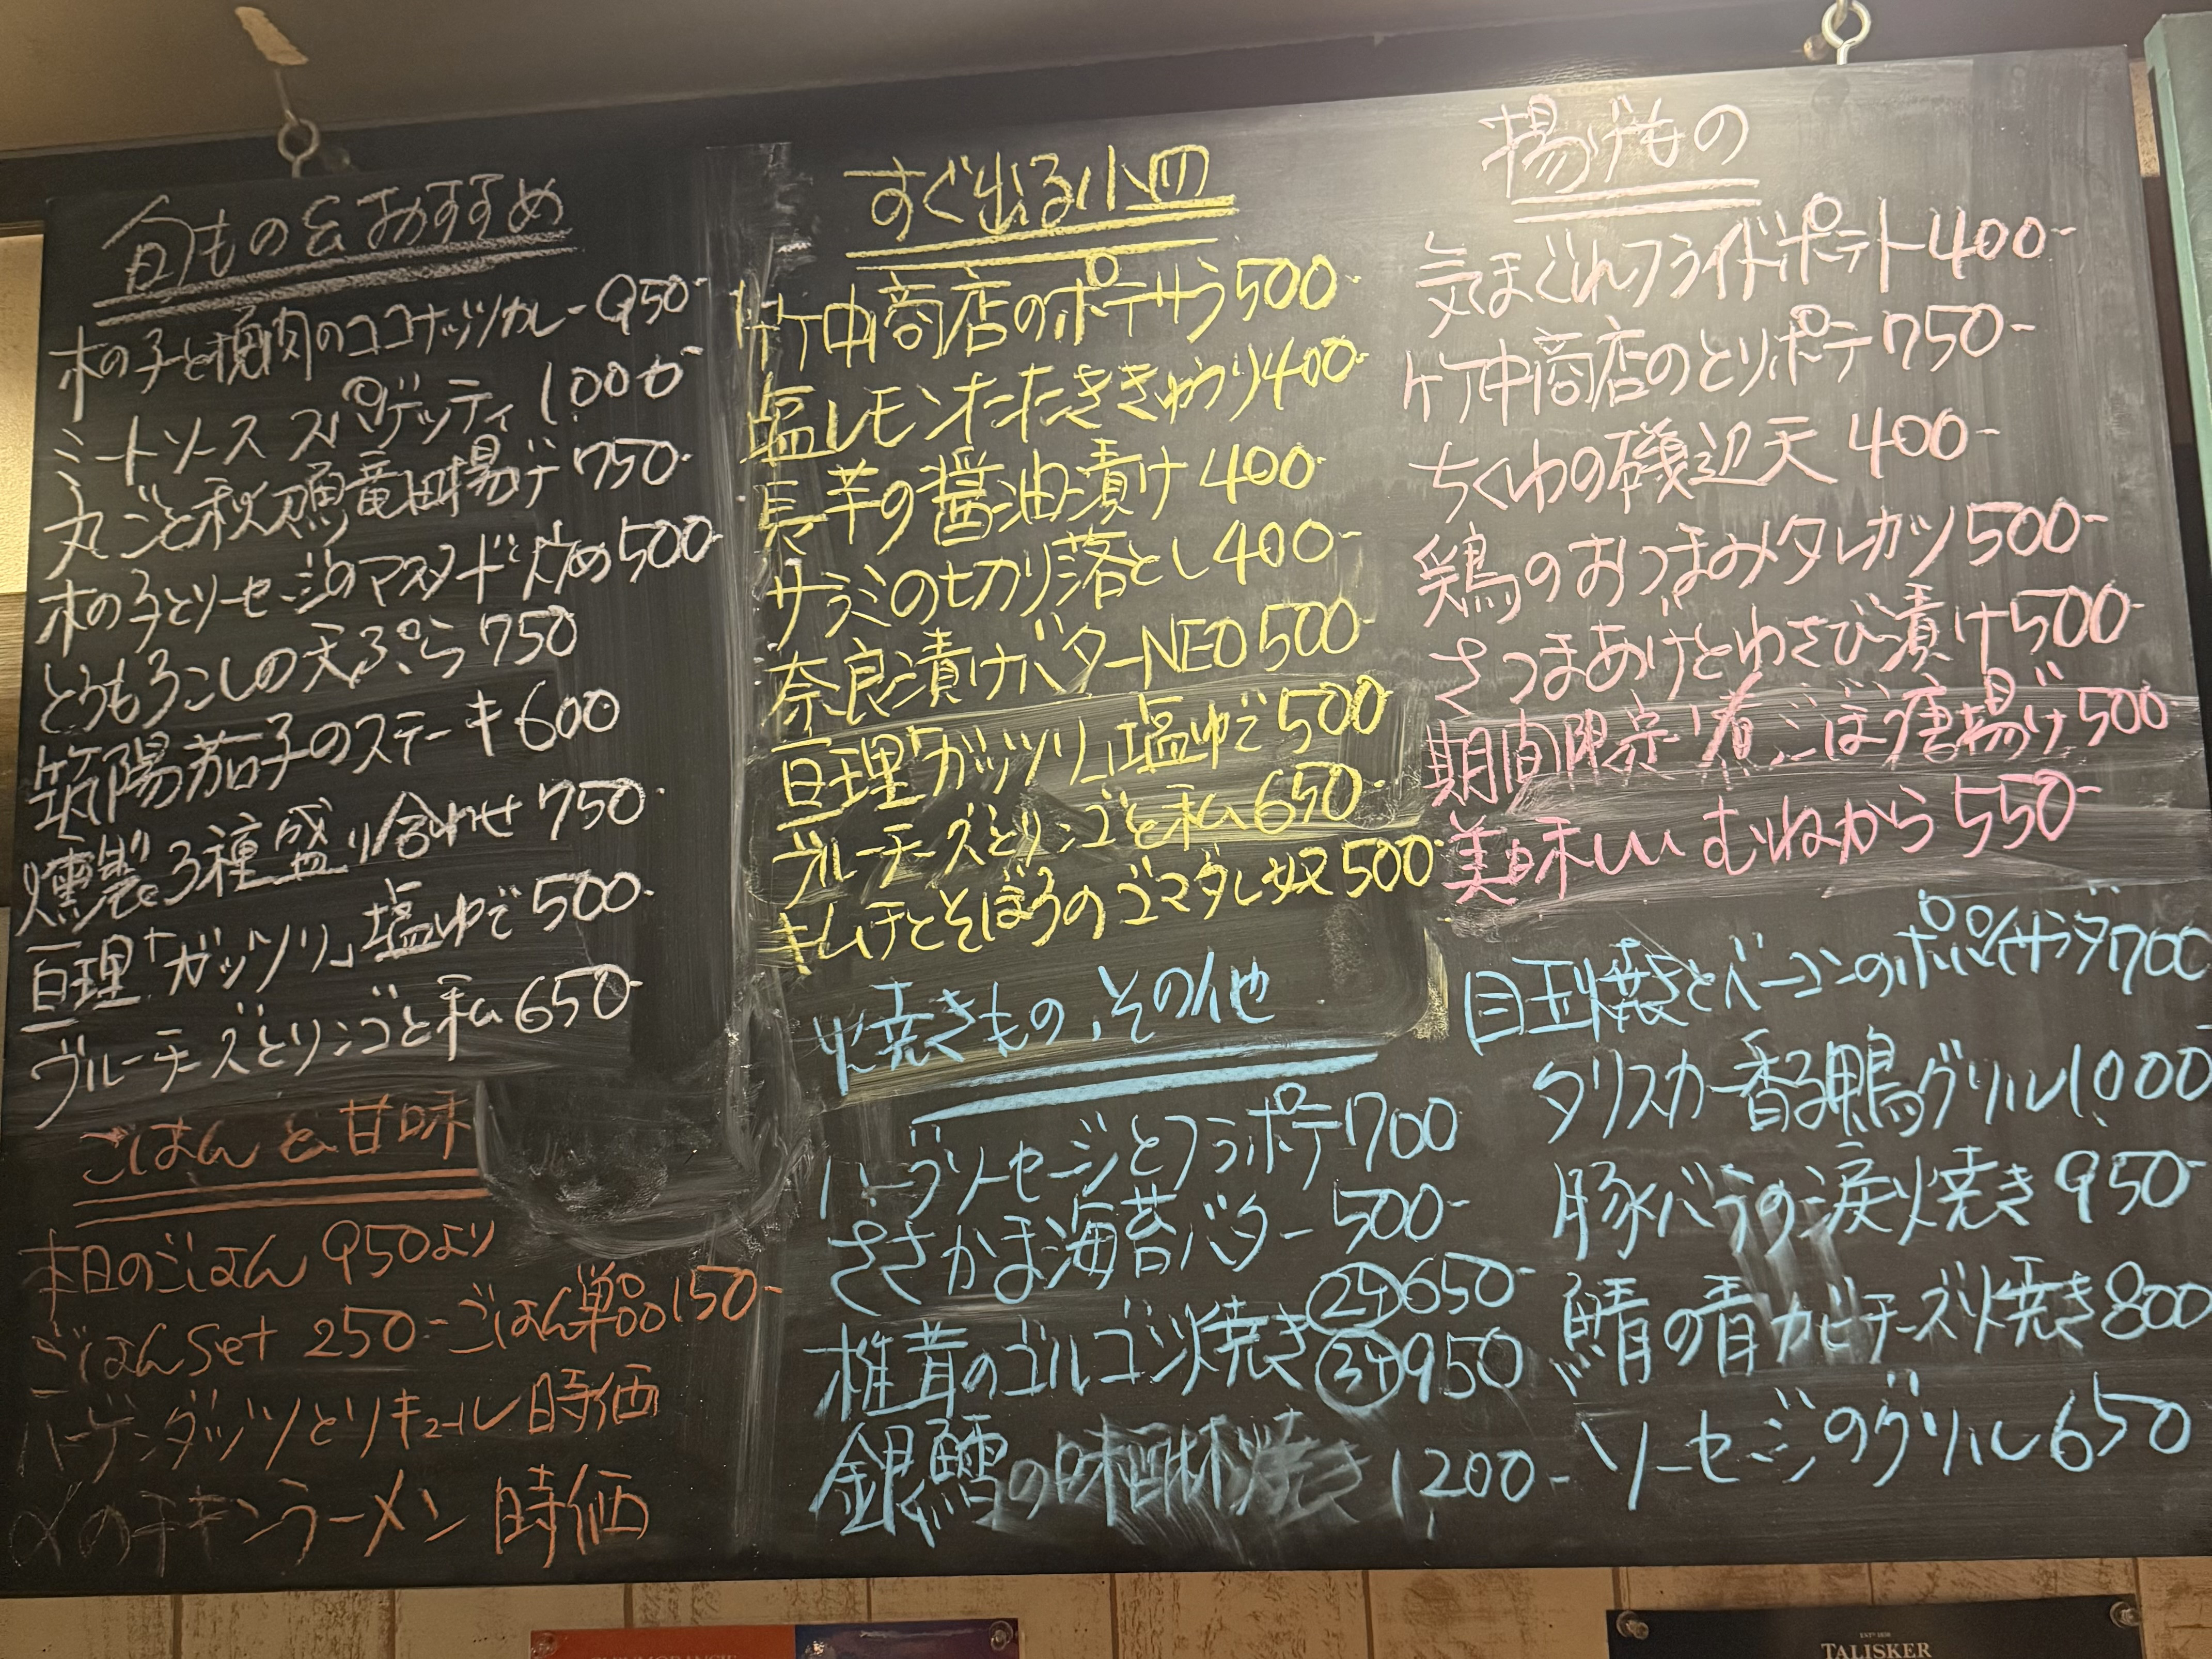 旬もの&おすすめ
木の子と挽肉のココナッツカレー950-
ミートソース スパゲッティ 1000-
丸ごと秋刀魚竜田揚げ 750-
木の子とソーセージのマスタード炒め500-
とうもろこしの天ぷら750
筑陽茄子のステーキ600
燻製3種盛り合わせ750-
亘理「ガッツリ」塩ゆで500-
ブルーチーズとリンゴと私650-
ごはんと甘味
本日のごはん 950より
ごはんSet 250-ごはん単品150-
ハーゲンダッツとリキュール時価
〆のチキンラーメン 時価
すぐ出る小皿
竹中商店のポテサラ500-
塩レモンたたききゅうり400-
長芋の醤油漬け 400-
サラミの切り落とし400-
奈良漬けバターNEO500-
亘理「ガッツリ」塩ゆで500
ブルーチーズとリンゴと私650-
キムチとそぼろのゴマダレ奴500-
焼きもの、その他
ハーブソーセージとフラポテ700
ささかま海苔バター500-
椎茸のゴルゴン焼き ②ヶ650-
③ヶ950
銀鱈の味醂焼き 1200-
揚げもの
気まぐれフライドポテト400-
竹中商店のとりポテ750-
ちくわの磯辺天 400-
鶏のおつまみタレカツ500-
さつまあげとわさび漬け500-
期間限定 煮ごぼう唐揚げ500
美味しいむねから550-
目玉焼きとベーコンのポパイサラダ700
タリスカー香る鴨グリル1000
豚バラの炭火焼き 950-
鯖の青カビチーズ焼き800
ソーセージのグリル650
TALISKER